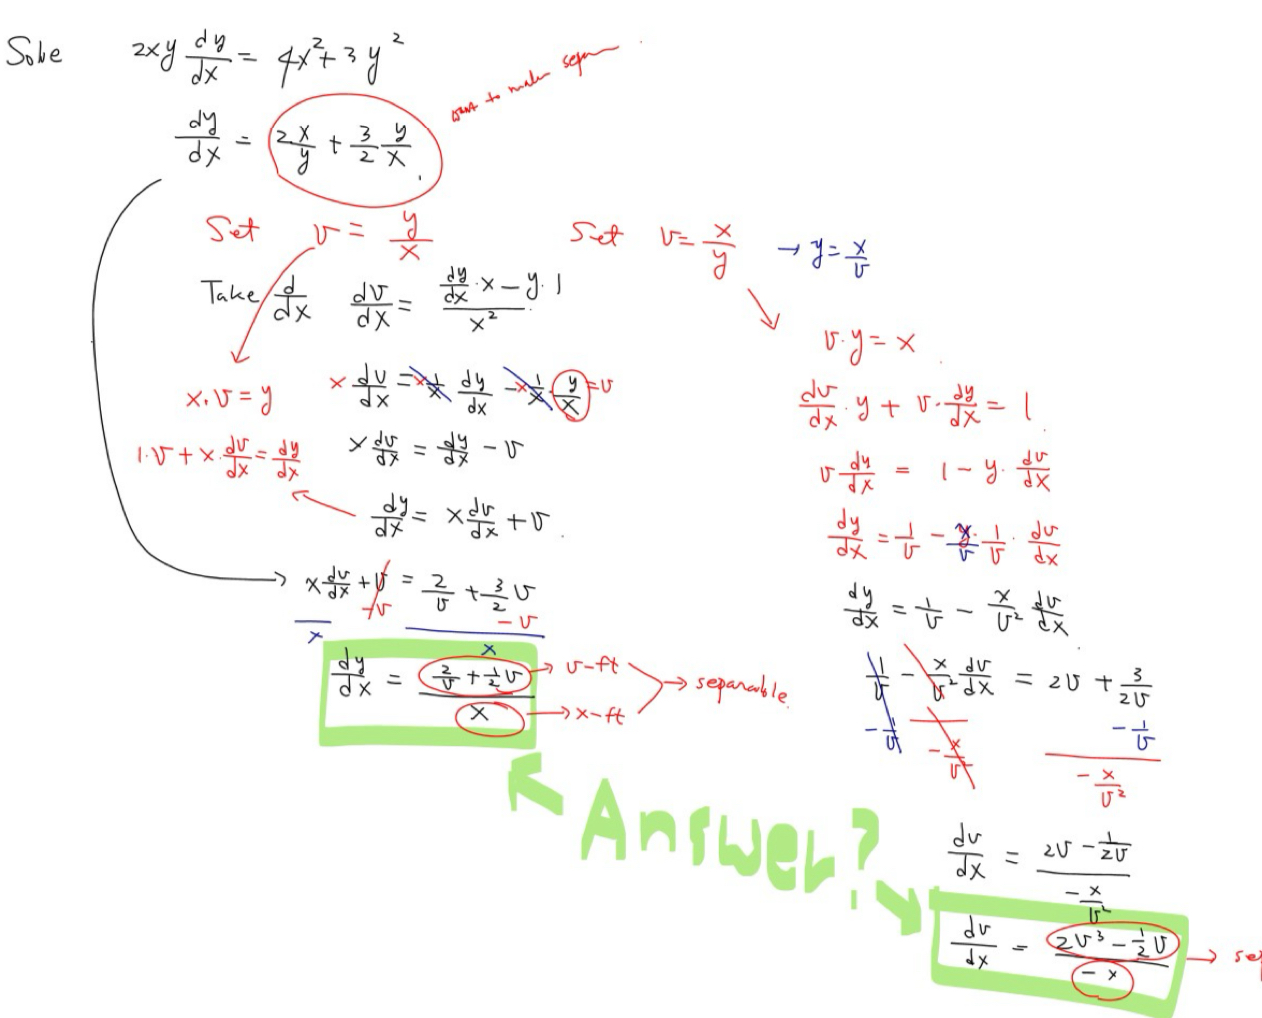 Solve 2xy dy/dx = 4x² + 3y²
want to make separ
dy/dx = 2x/y + 3/2 y/x
Set v = y/x
Take d/dx dv/dx = (dy/dx · x − y · 1)/x²
x dv/dx = x 1/x dy/dx − x 1/x y/x = v
x · v = y
x dv/dx = dy/dx − v
1 · v + x · dv/dx = dy/dx
dy/dx = x dv/dx + v
x dv/dx + v = 2/v + 3/2 v
−v −v
x x
dy/dx = (2/v + 1/2 v)/x
v-ft
x-ft
→ separable
Set v = x/y → y = x/v
v · y = x
dv/dx · y + v · dy/dx = 1
v dy/dx = 1 − y · dv/dx
dy/dx = 1/v − x/v · 1/v · dv/dx
dy/dx = 1/v − x/v² dv/dx
1/v − x/v² dv/dx = 2v + 3/2v
−1/v −1/v
−x/v² −x/v²
dv/dx = (2v − 1/2v)/(−x/v²)
dv/dx = (2v³ − 1/2 v)/(−x) → sep
Answer?